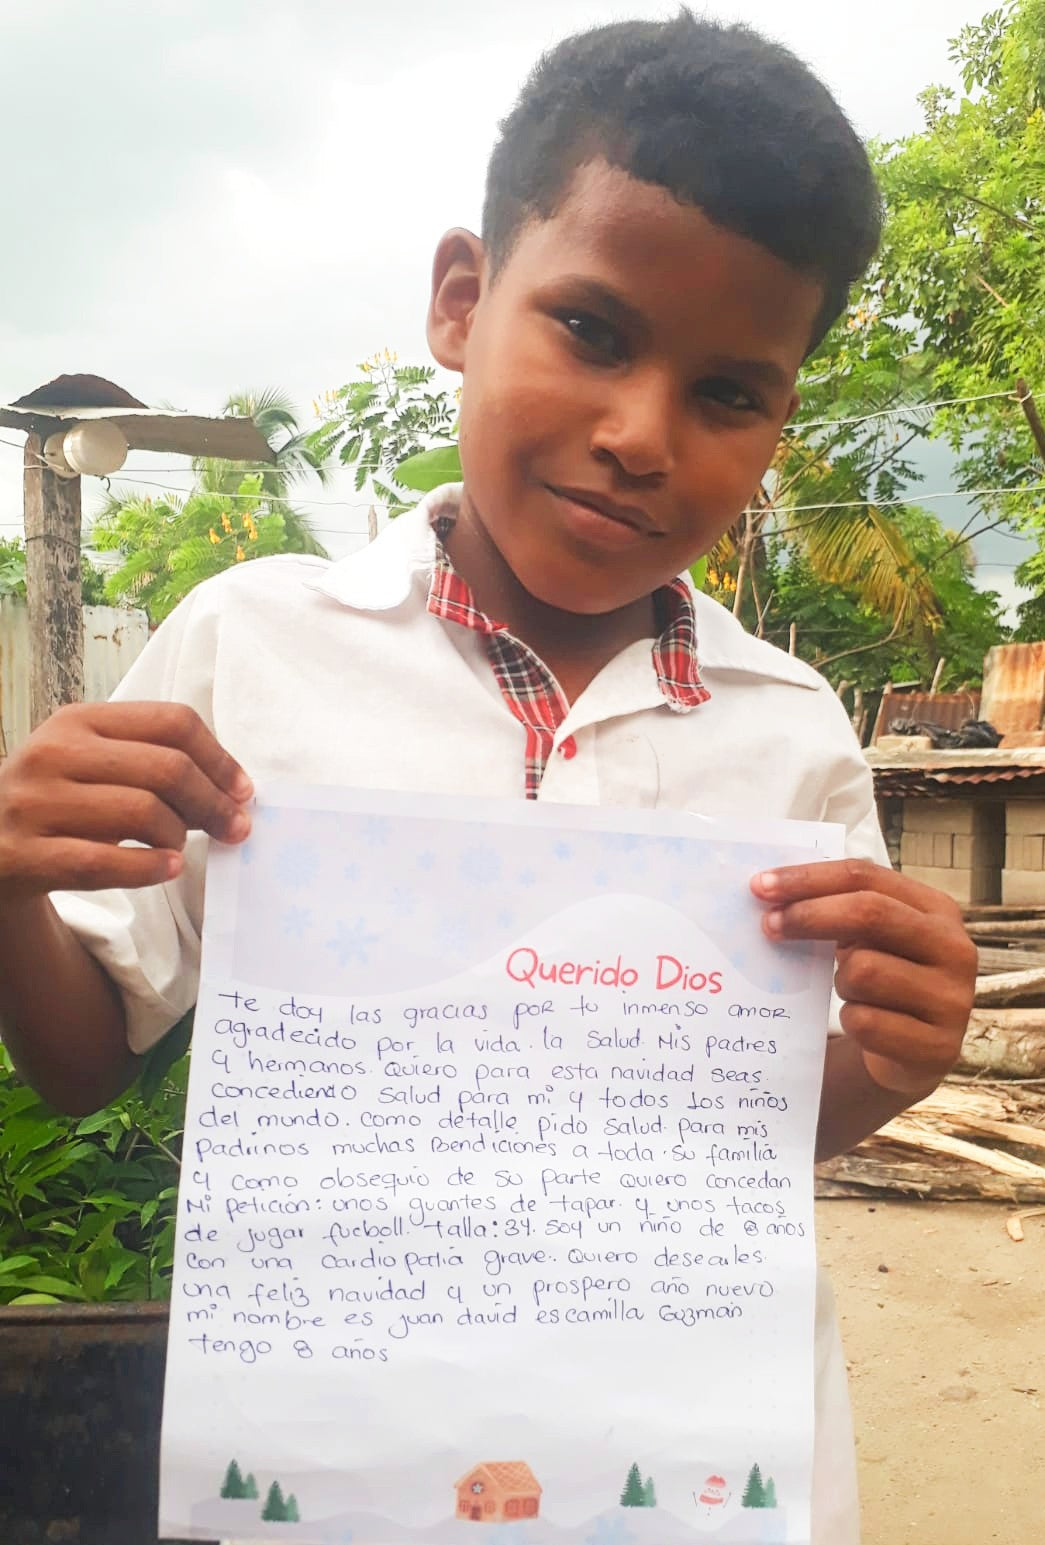 Querido Dios
te doy las gracias por tu inmenso amor
agradecido por la vida. la Salud. Mis padres
y hermanos. Quiero para esta navidad seas.
concediendo salud para mi y todos los niños
del mundo. como detalle pido salud. para mis
padrinos muchas Bendiciones a toda. su familia
y como obsequio de su parte Quiero concedan
Mi petición: unos guantes de tapar. y unos tacos
de jugar fucboll. talla: 34. Soy un niño de 8 años
con una cardiopatia grave. Quiero desearles.
una feliz navidad y un prospero año nuevo
mi nombre es juan david escamilla Guzman
tengo 8 años